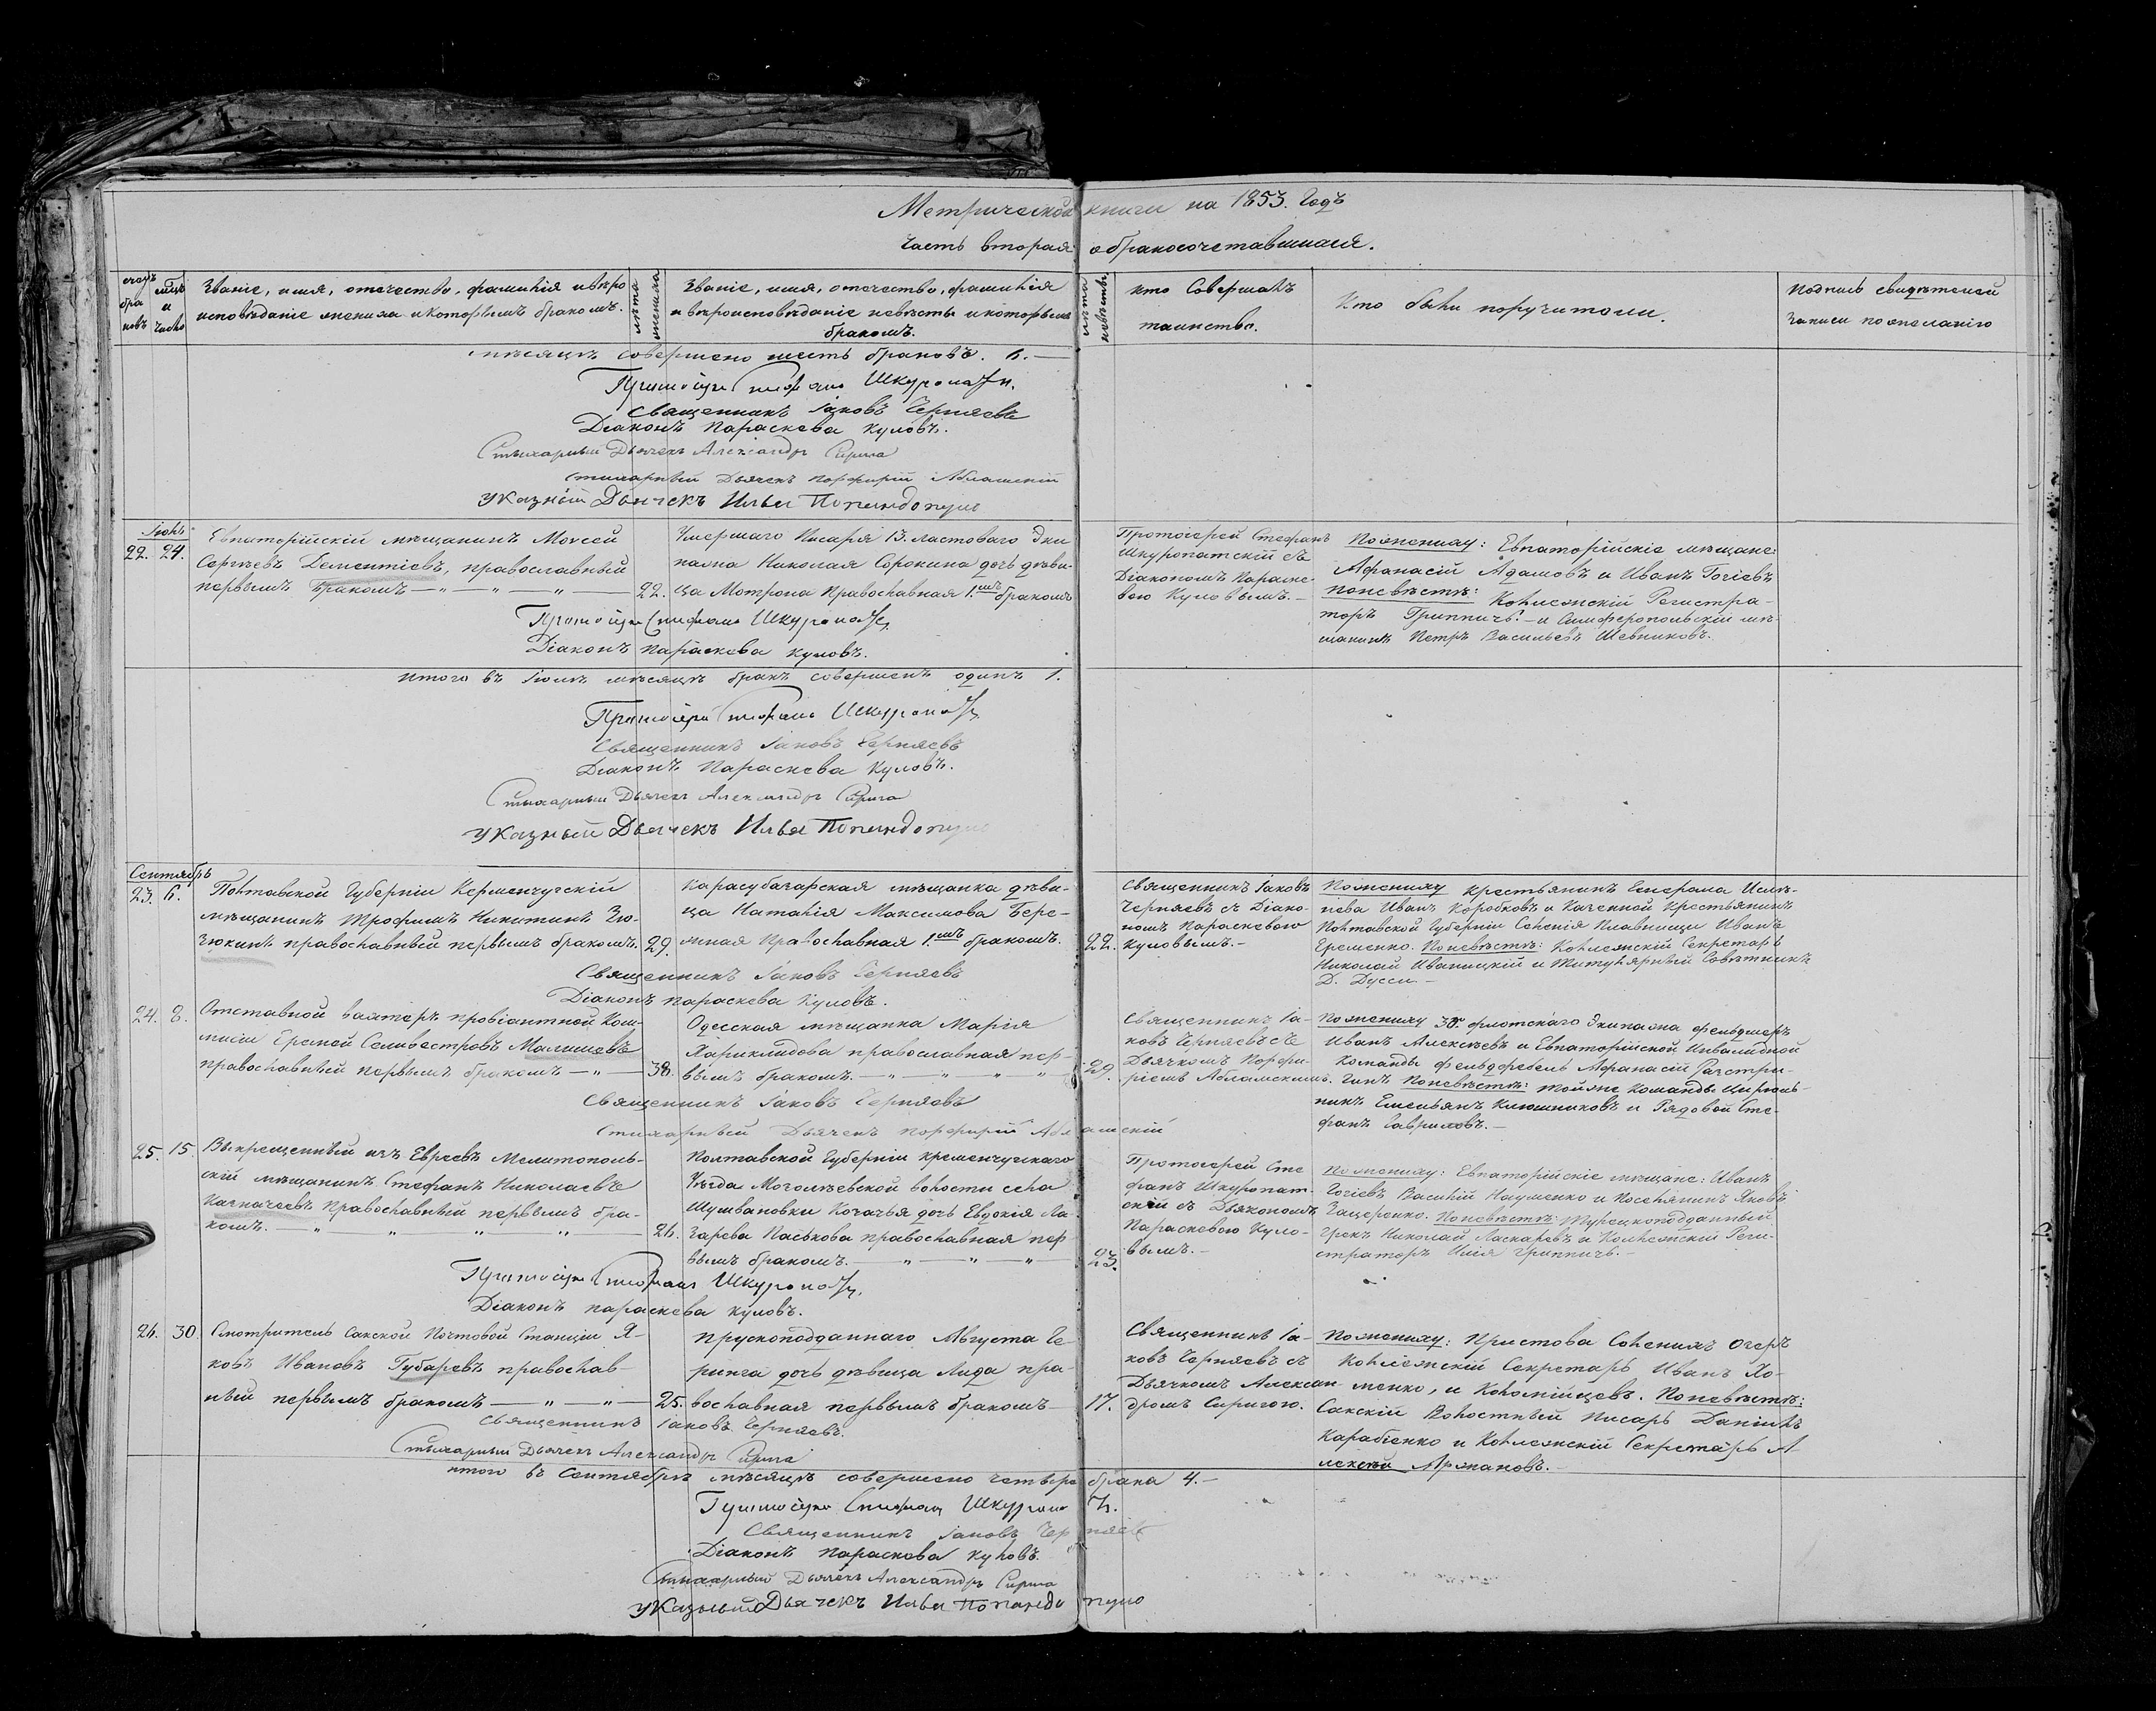 Метрической книги на 1853. Годъ
Часть вторая о бракосочетавшихся.
Звание, имя, отечество, фамилія и вѣро
исповѣданіе жениха и которымъ бракомъ.
лѣта жениха
Званіе, имя, отечество, фамилія
и вѣроисповѣданіе невѣсты и которымъ
бракомъ.
лѣта невѣсты
кто Совершалъ
таинство.
Кто были поручители.
Подпись свидѣтелей
записи по желанію
мѣсяцѣ совершено шесть браковъ. 6.
Протоіерей Стефанъ Шкуропат
Священникъ Іаковъ Черняевъ
Діаконъ Параскева Куловъ.
Стихарный Дьячекъ Александръ Сирига
Стихарный Дьячекъ Порфирій Абламскій
Указный Дьячекъ Илья Попандопуло
Іюль
22. 24. Евпаторійскій мѣщанинъ Моѵсей
Сергѣевъ Дементіевъ, православный
первымъ Бракомъ 22.
Умершаго Писаря 13. ластоваго Эки
пажа Николая Сорокина дочь дѣви-
ца Мотрона Православная 1.мъ бракомъ
Протоіерей Стефанъ
Шкуропатскій съ
Діакономъ Параске-
вою Куловымъ.
По жениху: Евпаторійскіе мѣщане:
Афанасій Адамовъ и Иванъ Гогіевъ
По невѣстѣ: Коллежскій Регистра-
торъ Гриппичъ. и Симферопольскій мѣ-
щанинъ Петръ Васильевъ Шевниковъ.
Протоіерей Стефанъ Шкуропат
Діаконъ Параскева Куловъ.
итого въ Іюлѣ мѣсяцѣ бракъ совершенъ одинъ 1.
Протоіерей Стефанъ Шкуропат
Священникъ Іаковъ Черняевъ
Діаконъ Параскева Куловъ.
Стихарный Дьячекъ Александръ Сирига
Указный Дьячекъ Илья Попандопуло
Сентябрь
23. 6. Полтавской Губерніи Керменчугскій
мѣщанинъ Трофимъ Никитинъ Зю-
зюкинъ православный первымъ бракомъ. 29.
Карасубазарская мѣщанка дѣви-
ца Наталія Максимова Бере-
жная Православная 1.мъ бракомъ. 22.
Священникъ Іаковъ
Черняевъ съ Діако-
номъ Параскевою
Куловымъ.
По жениху Крестьянинъ Генерала
Иванъ Коробковъ и Казенной Крестьянинъ
Полтавской Губерніи Селенія Плавнищи Иванъ
Еременко. По невѣстѣ: Коллежскій Секретарь
Николай Иваницкій и Титулярный Совѣтникъ
Д. Дусси
Священникъ Іаковъ Черняевъ
Діаконъ Параскева Куловъ.
24. 8. Отставной вахтеръ провіантной Ком-
мисіи Еремей Селивестровъ Малышевъ
православный первымъ бракомъ 38.
Одесская мѣщанка Марія
Хариклидова православная пер-
вымъ бракомъ. 29.
Священникъ Іа-
ковъ Черняевъ съ
Дьячкомъ Порфи-
ріемъ Абламскимъ.
По жениху 38го флотскаго Экипажа фельдшеръ
Иванъ Алексѣевъ и Евпаторійской Инвалидной
Команды фельдфебель Афанасій Растри-
гинъ По невѣстѣ: тойже Команды Цирюль-
никъ Емельянъ Клюшниковъ и Рядовой Сте-
фанъ Гавриловъ.
Священникъ Іаковъ Черняевъ
Стихарный Дьячекъ Порфирій Абламскій
25. 15. Выкрещенный изъ Евреевъ Мелитополь-
скій мѣщанинъ Стефанъ Николаевъ
Казначеевъ Православный первымъ бра-
комъ. 26.
Полтавской Губерніи Кременчугскаго
Уѣзда Моголѣевской волости села
Шушвановки Козачья дочь Евдокія Ла-
зарева Паськова православная пер
вымъ бракомъ. 23.
Протоіерей Сте
фанъ Шкуропат-
скій съ Дьякономъ
Параскевою Куло-
вымъ.
По жениху: Евпаторійскіе мѣщане: Иванъ
Гогіевъ Василій Науменко и Поселянинъ Яковъ
Защеренко. По невѣстѣ: Турецкоподданный
Грекъ Николай Ласкаревъ и Коллежскій Реги-
страторъ Илія Гриппичъ.
Протоіерей Стефанъ Шкуропат
Діаконъ Параскева Куловъ.
26. 30. Смотритель Сакской Почтовой Станціи Я-
ковъ Ивановъ Губаревъ православ-
ный первымъ бракомъ 25.
Прускоподданнаго Августа Ге-
ринга дочь дѣвица Лида пра-
вославная первымъ бракомъ 17.
Священникъ Іа-
ковъ Черняевъ съ
Дьячкомъ Алексан-
дромъ Сиригою.
По жениху: Пристава Соленихъ Озеръ
Коллежскій Секретарь Иванъ Хо-
менко, и Коломійцевъ. По невѣстѣ:
Сакскій Волостный Писарь Даніилъ
Карабіенко и Коллежскій Секретарь А
лексѣй Аржановъ.
Священникъ Іаковъ Черняевъ.
Стихарный Дьячекъ Александръ Сирига
итого въ Сентябрѣ мѣсяцѣ совершено четыре брака 4.
Протоіерей Стефанъ Шкуропат
Священникъ Іаковъ Черняевъ
Діаконъ Параскева Куловъ.
Стихарный Дьячекъ Александръ Сирига
Указный Дьячекъ Илья Попандопуло